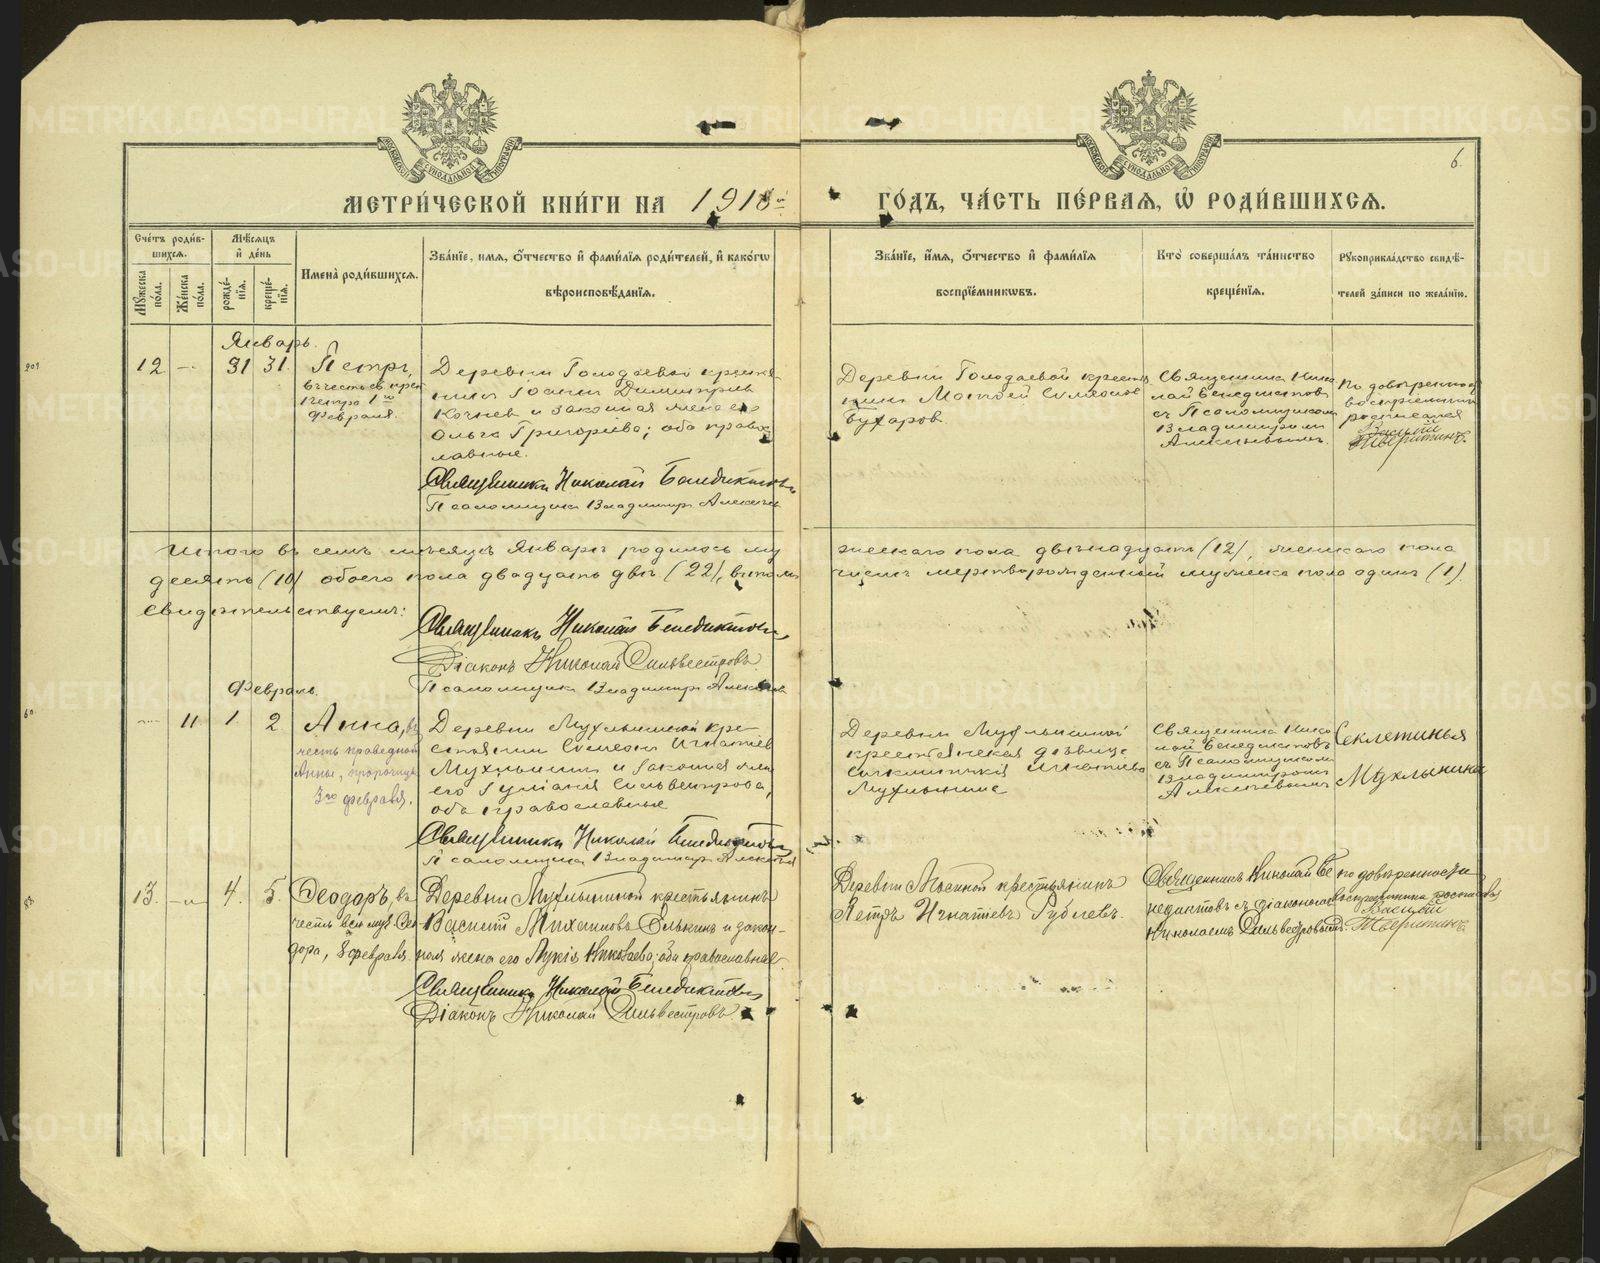 6.
МЕТРИ́ЧЕСКОЙ КНИ́ГИ НА 1918й ГО́ДЪ, ЧА́СТЬ ПЕ́РВАЯ, Ѡ РОДИ́ВШИХСЯ.
Сче́тъ роди́вшихся.
Му́жеска по́ла.
Же́нска по́ла.
Мѣ́сяцъ и҆ де́нь
рожде́нїя.
креще́нїя.
И҆мена̀ роди́вшихся.
Зва́нїе, и҆́мя, ѻ҆́тчество и҆ фами́лїя роди́телей, и҆ како́гѡ
вѣроисповѣ́данїя.
Зва́нїе, и҆́мя, ѻ҆́тчество и҆ фами́лїя
воспрїе́мникѡвъ.
Кто̀ соверша́лъ та́инство
креще́нїя.
Рꙋкоприкла́дство свидѣ́-
телей за́писи по жела́нїю.
Январь.
12 31 31. Петръ,
февраля.
Деревни Голодаевой крестья-
нинъ Іоаннъ Димитріевъ
и законная жена его
Ольга Григорьева; оба право-
славные.
Священникъ Николай Бенедиктовъ
Псаломщикъ Владимиръ Алексѣевъ
Деревни Голодаевой крестья-
нинъ Матѳей Симеоновъ
Бухаровъ
Священникъ Нико-
лай Бенедиктовъ
съ Псаломщикомъ
Владимиромъ
Алексѣевымъ.
По довѣренности
росписался
Василій
Тверитинъ.
Итого въ семъ мѣсяцѣ Январѣ родилось му
жескаго пола двѣнадцать (12), женскаго пола
десять (10) обоего пола двадцать два (22), въ томъ
числѣ мертворожденный мужеска пола одинъ (1).
Свидѣтельствуемъ:
Священникъ Николай Бенедиктовъ
Діаконъ Николай Сильвестровъ.
Псаломщикъ Владимиръ Алексѣевъ
Февраль.
11 1 2 Анна, въ
честь праведной
Анны, пророчицы
3го февраля.
Деревни Мухлыниной кре-
стьянинъ Симеонъ Игнатіев
и законная жена
его Сильвестрова,
оба православные
Священникъ Николай Бенедиктовъ
Псаломщикъ Владимиръ Алексѣевъ
Деревни Мухлыниной
крестьянская дѣвица
Игнатіева
Мухлынина
Священникъ Нико-
лай Бенедиктовъ
съ Псаломщикомъ
Владимиромъ
Алексѣевымъ
Секлетинья
Мухлынина
13. 4. 5. Ѳеодоръ, въ
честь
дора, 8 февраля.
Деревни Мухлыниной крестьянинъ
Василій Елькинъ и закон-
ная жена его Лукія Николаева; оба православные
Священникъ Николай Бенедиктовъ
Діаконъ Николай Сильвестровъ.
Деревни Мосиной крестьянинъ
Петръ Игнатіевъ Рублевъ.
Священникъ Николай Бе-
недиктовъ съ діакономъ
Николаемъ Сильвестровымъ.
по довѣренности
воспріемника росписался
Василій
Тверитинъ.
METRIKI.GASO-URAL.RU